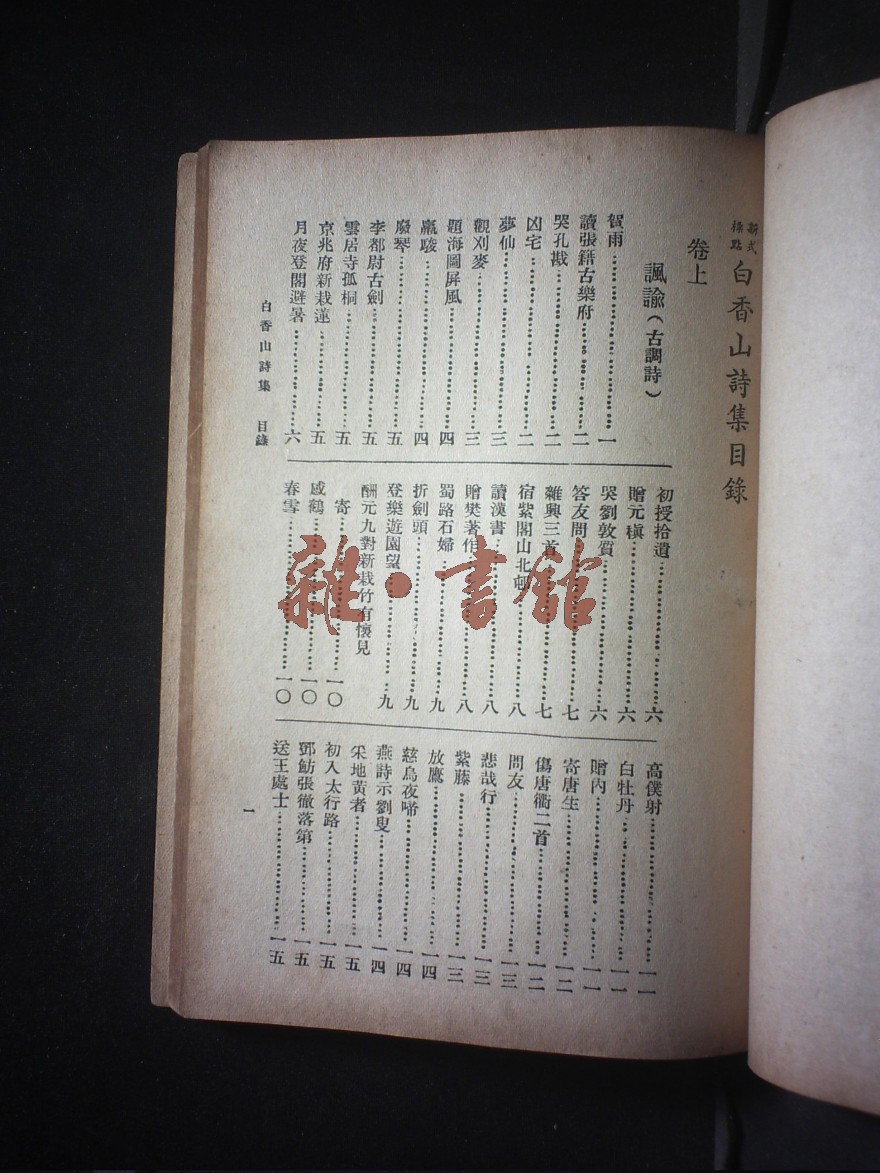 新式標點 白香山詩集目錄
卷上
諷諭(古調詩)
賀雨……一
讀張籍古樂府……二
哭孔戡……二
凶宅……二
夢仙……三
觀刈麥……三
題海圖屏風……四
羸駿……四
廢琴……五
李都尉古劍……五
雲居寺孤桐……五
京兆府新栽蓮……五
月夜登閣避暑……六
初授拾遺……六
贈元稹……六
哭劉敦質……六
答友問……七
雜興三首……七
宿紫閣山北邨……八
讀漢書……八
贈樊著作……八
蜀路石婦……九
折劍頭……九
登樂遊園望……九
酬元九對新栽竹有懷見
寄……一〇
感鶴……一〇
春雪……一〇
高僕射……一一
白牡丹……一一
贈內……一一
寄唐生……一二
傷唐衢二首……一二
問友……一三
悲哉行……一三
紫藤……一三
放鷹……一四
慈烏夜啼……一四
燕詩示劉叟……一四
采地黃者……一五
初入太行路……一五
鄧魴張徹落第……一五
送王處士……一五
白香山詩集 目錄
一
雜·書館